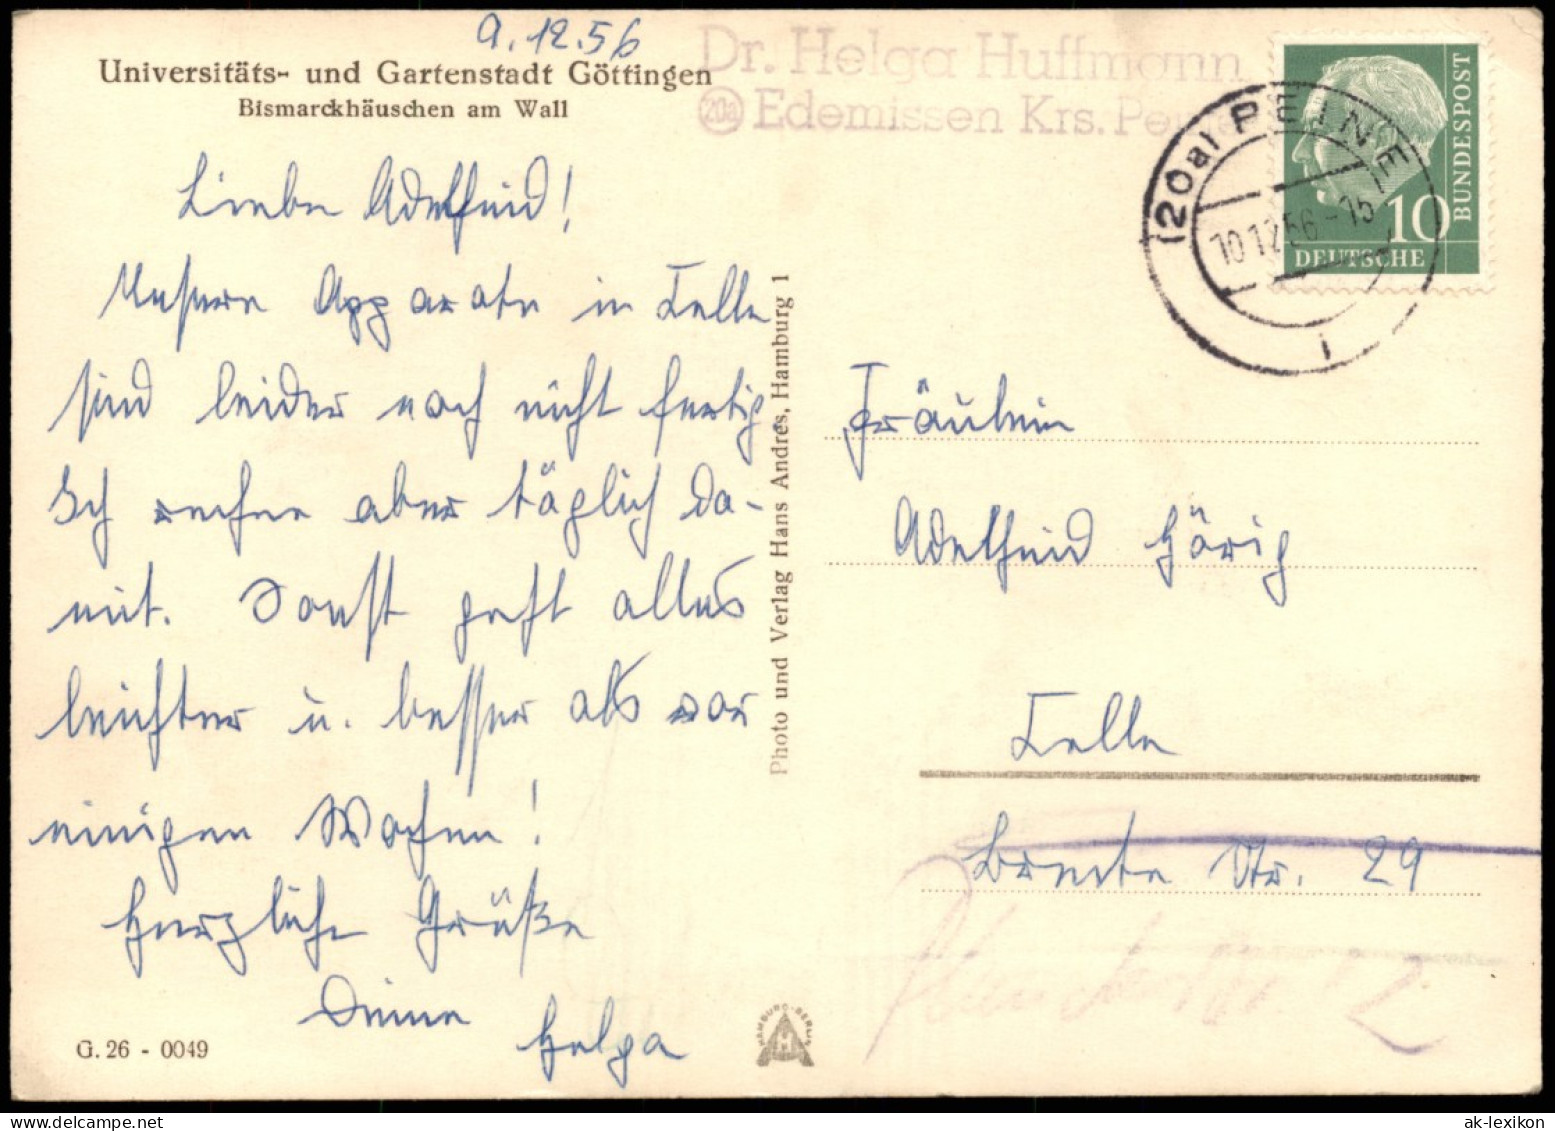 9.12.56
Universitäts- und Gartenstadt Göttingen
Bismarckhäuschen am Wall
Dr. Helga Huffmann
20a Edemissen Krs. Peine
(20a) PEINE
10.12.56-15
i
DEUTSCHE
BUNDESPOST
10
Liebe Adelheid!
Unsere Apparate in Celle
sind leider noch nicht fertig.
Ich rechne aber täglich da-
mit. Sonst geht alles
leichter u. besser als vor
einigen Wochen!
Herzliche Grüße
Deine
Helga
G. 26 - 0049
Photo und Verlag Hans Andres, Hamburg 1
HAMBURG-BERLIN
Fräulein
Adelheid Hörig
Celle
Breite Str. 29
ak-lexikon.com